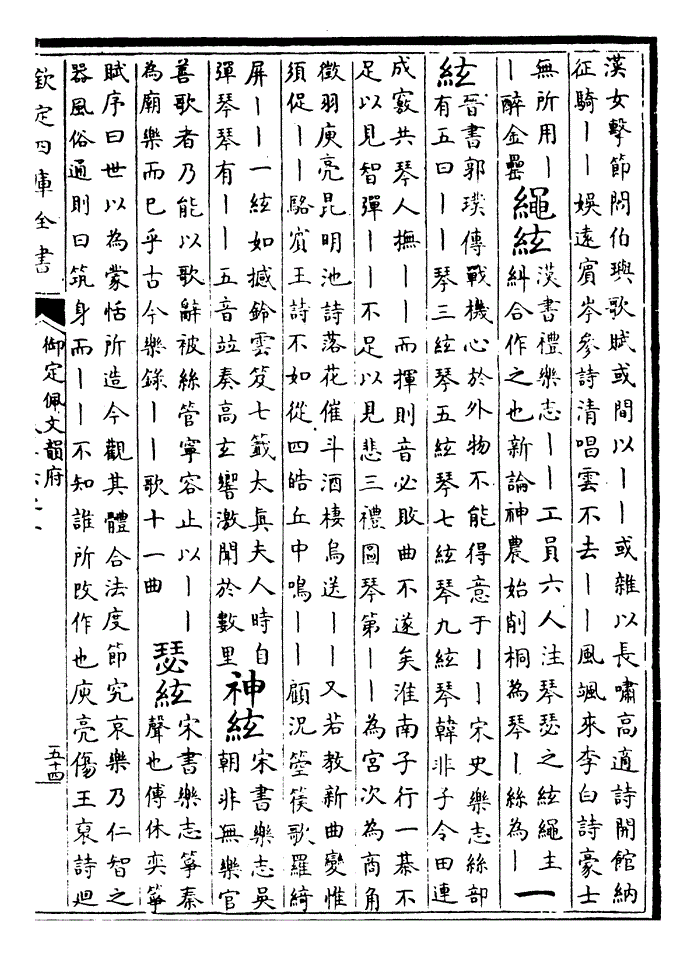 漢女擊節閻伯璵歌賦或間以丨丨或雜以長嘯高適詩開館納
征騎丨丨娛遠賓岑參詩清唱雲不去丨丨風颯來李白詩豪士
無所用丨
丨醉金罍
繩絃
漢書禮樂志丨丨工員六人注琴瑟之絃繩主
糾合作之也新論神農始削桐為琴丨絲為丨
一
絃
晉書郭璞傳戰機心於外物不能得意于丨丨宋史樂志絲部
有五曰丨丨琴三絃琴五絃琴七絃琴九絃琴韓非子令田連
成竅共琴人撫丨丨而揮則音必敗曲不遂矣淮南子行一棊不
足以見智彈丨丨不足以見悲三禮圖琴第丨丨為宮次為商角
徵羽庾亮昆明池詩落花催斗酒棲烏送丨丨又若教新曲變惟
須促丨丨駱賓王詩不如從四皓丘中鳴丨丨顧況箜篌歌羅綺
屏丨丨一絃如撼鈴雲笈七籤太真夫人時自
彈琴琴有丨丨五音竝奏高玄響激聞於數里
神絃
宋書樂志吳
朝非無樂官
善歌者乃能以歌辭被絲管寧容止以丨丨
為廟樂而已乎古今樂錄丨丨歌十一曲
瑟絃
宋書樂志箏秦
聲也傅休奕箏
賦序曰世以為蒙恬所造今觀其體合法度節究哀樂乃仁智之
器風俗通則曰筑身而丨丨不知誰所改作也庾亮傷王裒詩廻
欽定四庫全書
御定佩文韻府
五十四